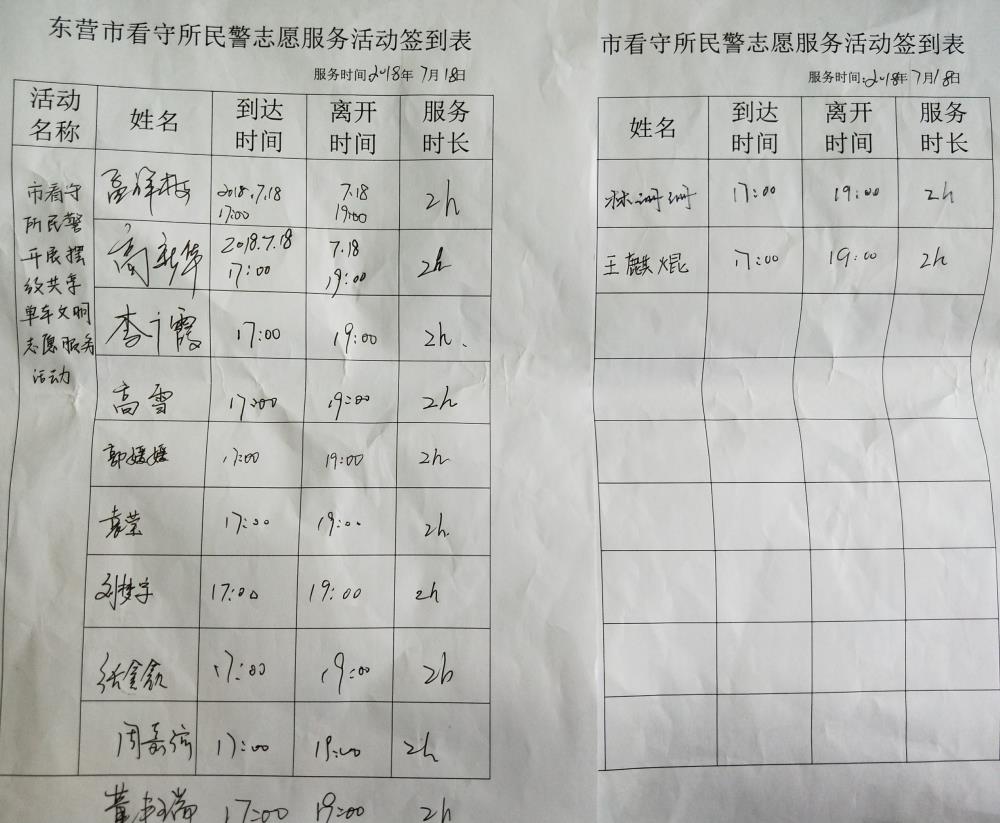 东营市看守所民警志愿服务活动签到表
服务时间2018年7月18日
活动名称 姓名 到达时间 离开时间 服务时长
市看守
所民警
开展摆
放共享
单车文明
志愿服务
活动
2018.7.18 17:00 7.18 19:00 2h
2018.7.18 17:00 7.18 19:00 2h
17:00 19:00 2h.
高雪 17:00 19:00 2h
郭媛媛 17:00 19:00 2h
袁荣 17:00 19:00 2h
刘梦宇 17:00 19:00 2h
张鑫 17:00 19:00 2h
周嘉 17:00 19:00 2h
董 17:00 19:00 2h
市看守所民警志愿服务活动签到表
服务时间:2018年7月18日
姓名 到达时间 离开时间 服务时长
林珊珊 17:00 19:00 2h
王麒焜 17:00 19:00 2h